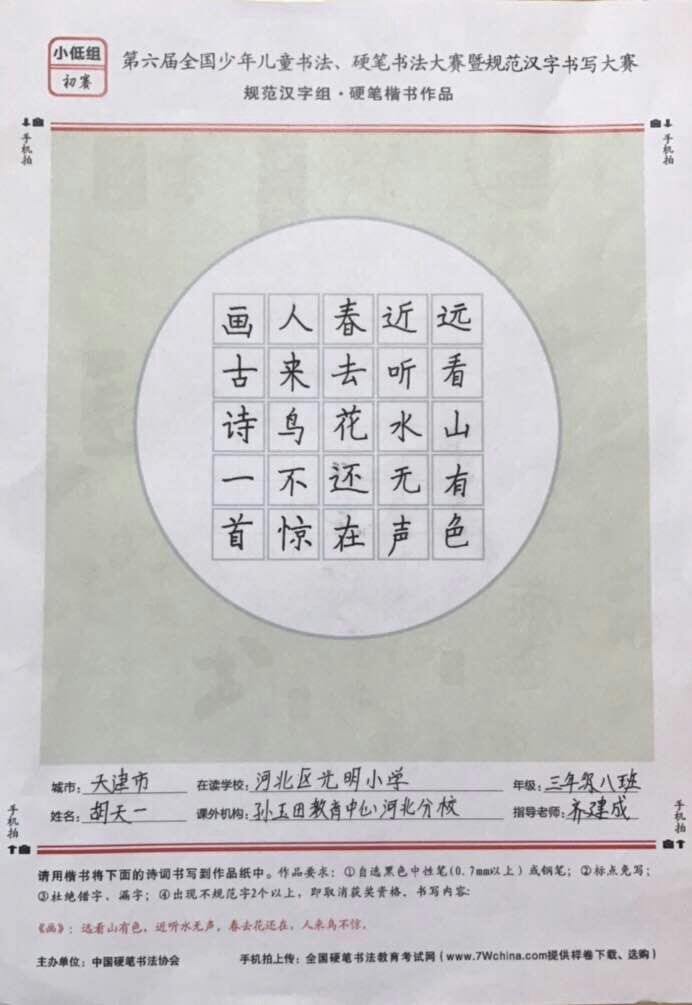 小低组
初赛
第六届全国少年儿童书法、硬笔书法大赛暨规范汉字书写大赛
规范汉字组·硬笔楷书作品
手机拍
手机拍
远看山有色
近听水无声
春去花还在
人来鸟不惊
画古诗一首
城市: 天津市 在读学校: 河北区光明小学 年级: 三年第八班
姓名: 胡天一 课外机构: 孙玉田教育中心河北分校 指导老师: 齐建成
手机拍
手机拍
请用楷书将下面的诗词书写到作品纸中。作品要求：①自选黑色中性笔(0.7mm以上)或钢笔；②标点免写；
③杜绝错字、漏字；④出现不规范字2个以上，即取消获奖资格。书写内容:
《画》：远看山有色，近听水无声。春去花还在，人来鸟不惊。
主办单位：中国硬笔书法协会 手机拍上传：全国硬笔书法教育考试网（www.7Wchina.com提供样卷下载、选购）